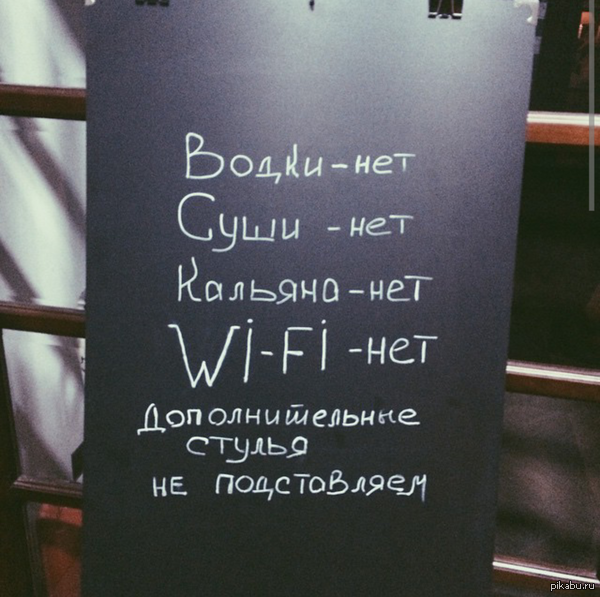 Водки-нет
Суши -нет
Кальяна-нет
Wi-Fi -нет
Дополнительные
стулья
не подставляем
pikabu.ru